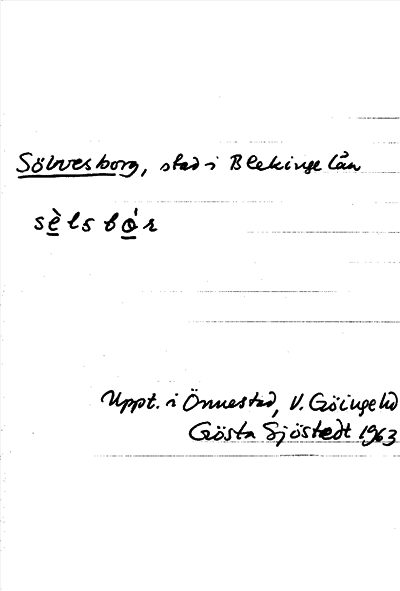 Sölvesborg, stad i Blekinge län
sè̲lsbó̲r
Uppt. i Önnestad, V. Göinge hd
Gösta Sjöstedt 1963